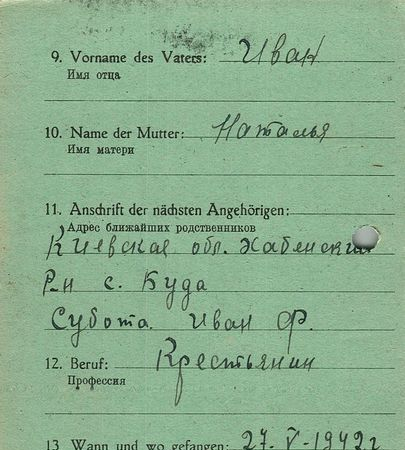 9. Vorname des Vaters: Иван
Имя отца
10. Name der Mutter: Наталья
Имя матери
11. Anschrift der nächsten Angehörigen:
Адрес ближайших родственников
Киевская обл. Хабенский
Р-н с. Буда
Субота Иван Ф.
12. Beruf: Крестьянин
Профессия
13 Wann und wo gefangen: 27-V-1942 г